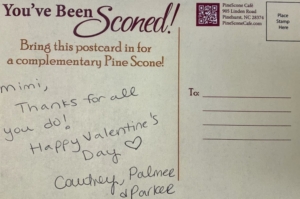 You've Been Sconed!
Bring this postcard in for
a complementary Pine Scone!
PineScone Café
905 Linden Road
Pinehurst, NC 28374
PineSconeCafe.com
Place
Stamp
Here
To:
mimi,
Thanks for all
you do!
Happy Valentine's
Day ♡
Courtney, Palmer
& Parker